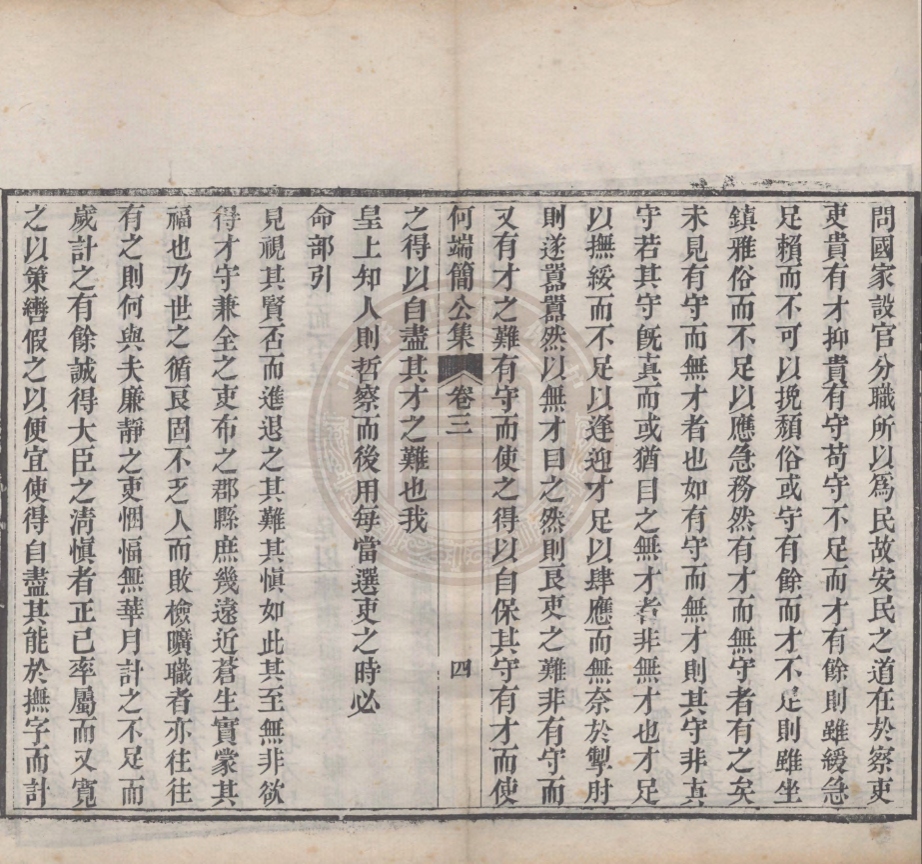 問國家設官分職所以爲民故安民之道在於察吏
吏貴有才抑貴有守苟守不足而才有餘則雖緩急
足賴而不可以挽頽俗或守有餘而才不足則雖坐
鎮雅俗而不足以應急務然有才而無守者有之矣
未見有守而無才者也如有守而無才則其守非真
守若其守旣真而或猶目之無才者非無才也才足
以撫綏而不足以逢迎才足以肆應而無奈於掣肘
則遂囂囂然以無才目之然則良吏之難非有守而
又有才之難有守而使之得以自保其守有才而使
何端簡公集 卷三 四
之得以自盡其才之難也我
皇上知人則哲察而後用每當選吏之時必
命部引
見視其賢否而進退之其難其愼如此其至無非欲
得才守兼全之吏布之郡縣庶幾遠近蒼生實蒙其
福也乃世之循良固不乏人而敗檢曠職者亦往往
有之則何與夫廉靜之吏悃愊無華月計之不足而
歲計之有餘誠得大臣之淸愼者正己率屬而又寬
之以策轡假之以便宜使得自盡其能於撫字而計